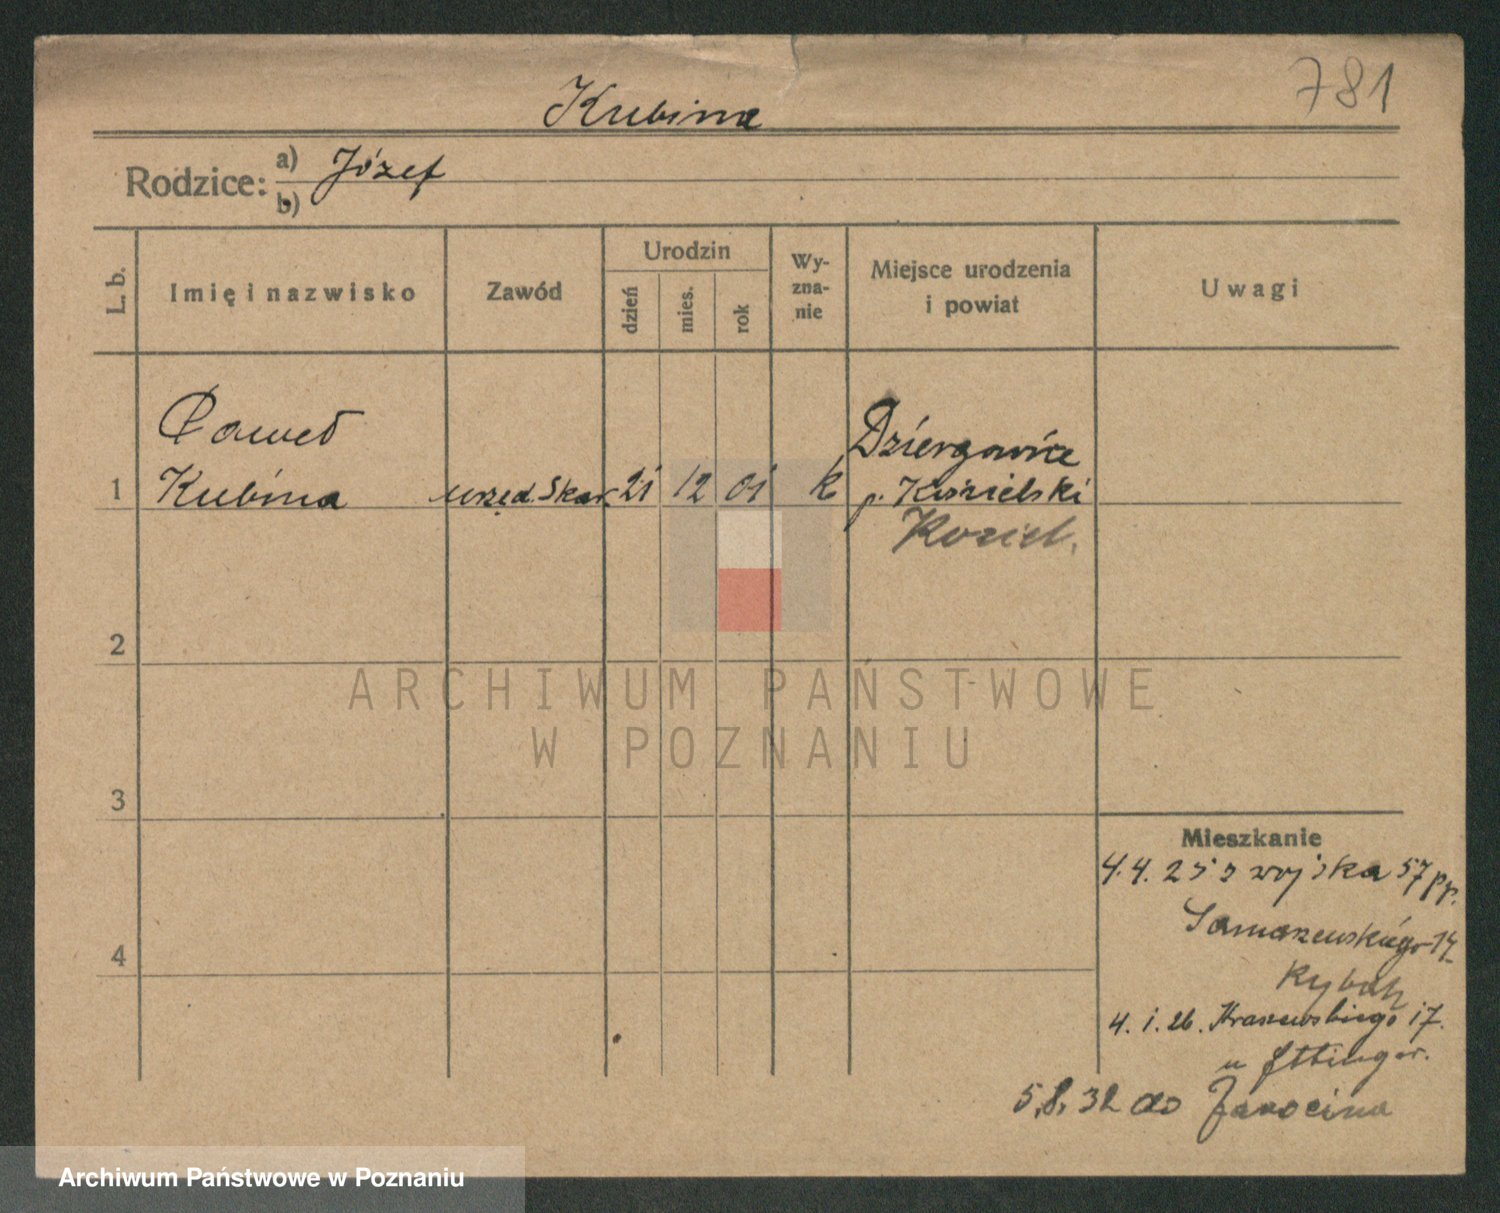 781
Kubina
Rodzice: a) Józef
b)
L. b.
Imię i nazwisko
Zawód
Urodzin
dzień
mies.
rok
Wy-
zna-
nie
Miejsce urodzenia
i powiat
Uwagi
Paweł
Dziergowice
1 Kubina urzęd. Skar. 21 12 01 k p. Kozielski
Koziel.
2
3
4
ARCHIWUM PAŃSTWOWE
W POZNANIU
Mieszkanie
4.4.25 z wojska 57 pp.
Samarzewskiego 14
4.1.26. Kraszewskiego 17.
u
5.8.32 do Jarocina
Archiwum Państwowe w Poznaniu